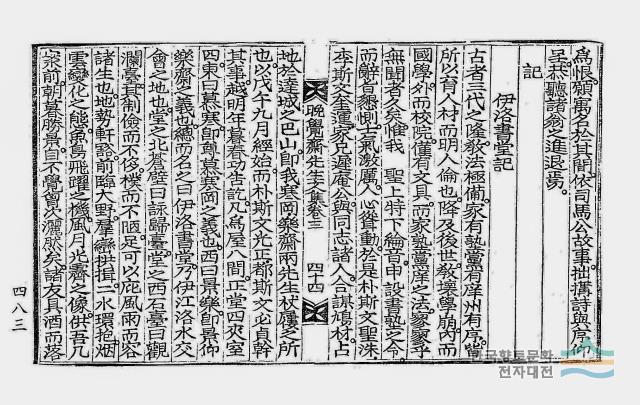 爲恨。願寓名於其間。依司馬公故事。拙搆詩與序。仰
呈。恭聽諸翁之進退焉。
記
伊洛書堂記
古者三代之隆。敎法極備。家有塾黨有庠州有序。皆
所以育人材而明人倫也。降及後世。敎壞學崩。內而
國學。外而校院。僅有文具。而家塾黨庠之法。寥寥乎
無聞者久矣。惟我 聖上特下綸音。申設書塾之令。
而辭旨懇惻。士氣激厲。人心聳動。於是朴斯文聖洙
李斯文奎運。家兄遯庵公。與同志諸人。合謀鳩材。占
晩覺齋先生文集卷三 四十四
地於達城之巴山。卽我寒岡樂齋兩先生杖屨之所
也。以戊午九月經始。而朴斯文光正都斯文必貞幹
其事。越明年暮春。功告訖。凡爲屋八間。正堂四夾室
四。東曰慕寒。卽尊慕寒岡之義也。西曰景樂。卽景仰
樂齋之義也。總而名之曰伊洛書堂。乃伊江洛水交
會之地也。堂之北蒼壁曰詠歸臺。堂之西石臺曰觀
瀾臺。其制儉而不侈。樸而不陋。足可以庇風雨而容
諸生也。地勢軒豁。前臨大野。羣巒拱揖。二水環抱。烟
雲變化之態。魚鳥飛躍之機。風月光霽之像。供吾几
案前朝暮勝景。自不覺胷次灑然矣。諸友具酒而落
四八三
한국향토문화
전자대전